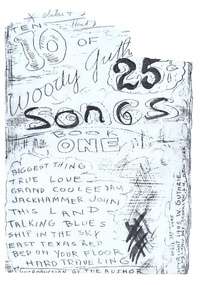 TEN
10 OF
Woody Guth
25¢
SONGS
BOOK
ONE
BIGGEST THING
TRUE LOVE
GRAND COOLEE DAM
JACKHAMMER JOHN
THIS LAND
TALKING BLUES
SHIP IN THE SKY
EAST TEXAS RED
BED ON YOUR FLOOR
HARD TRAVELING
BY THE AUTHOR
1945 W. GUTHRIE